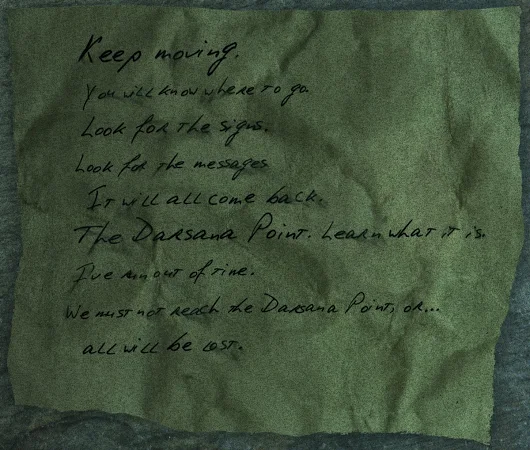 Keep moving.
You will know where to go.
Look for the signs.
Look for the messages
It will all come back.
The Darsana Point. Learn what it is.
I've run out of time.
We must not reach the Darsana Point, or...
all will be lost.